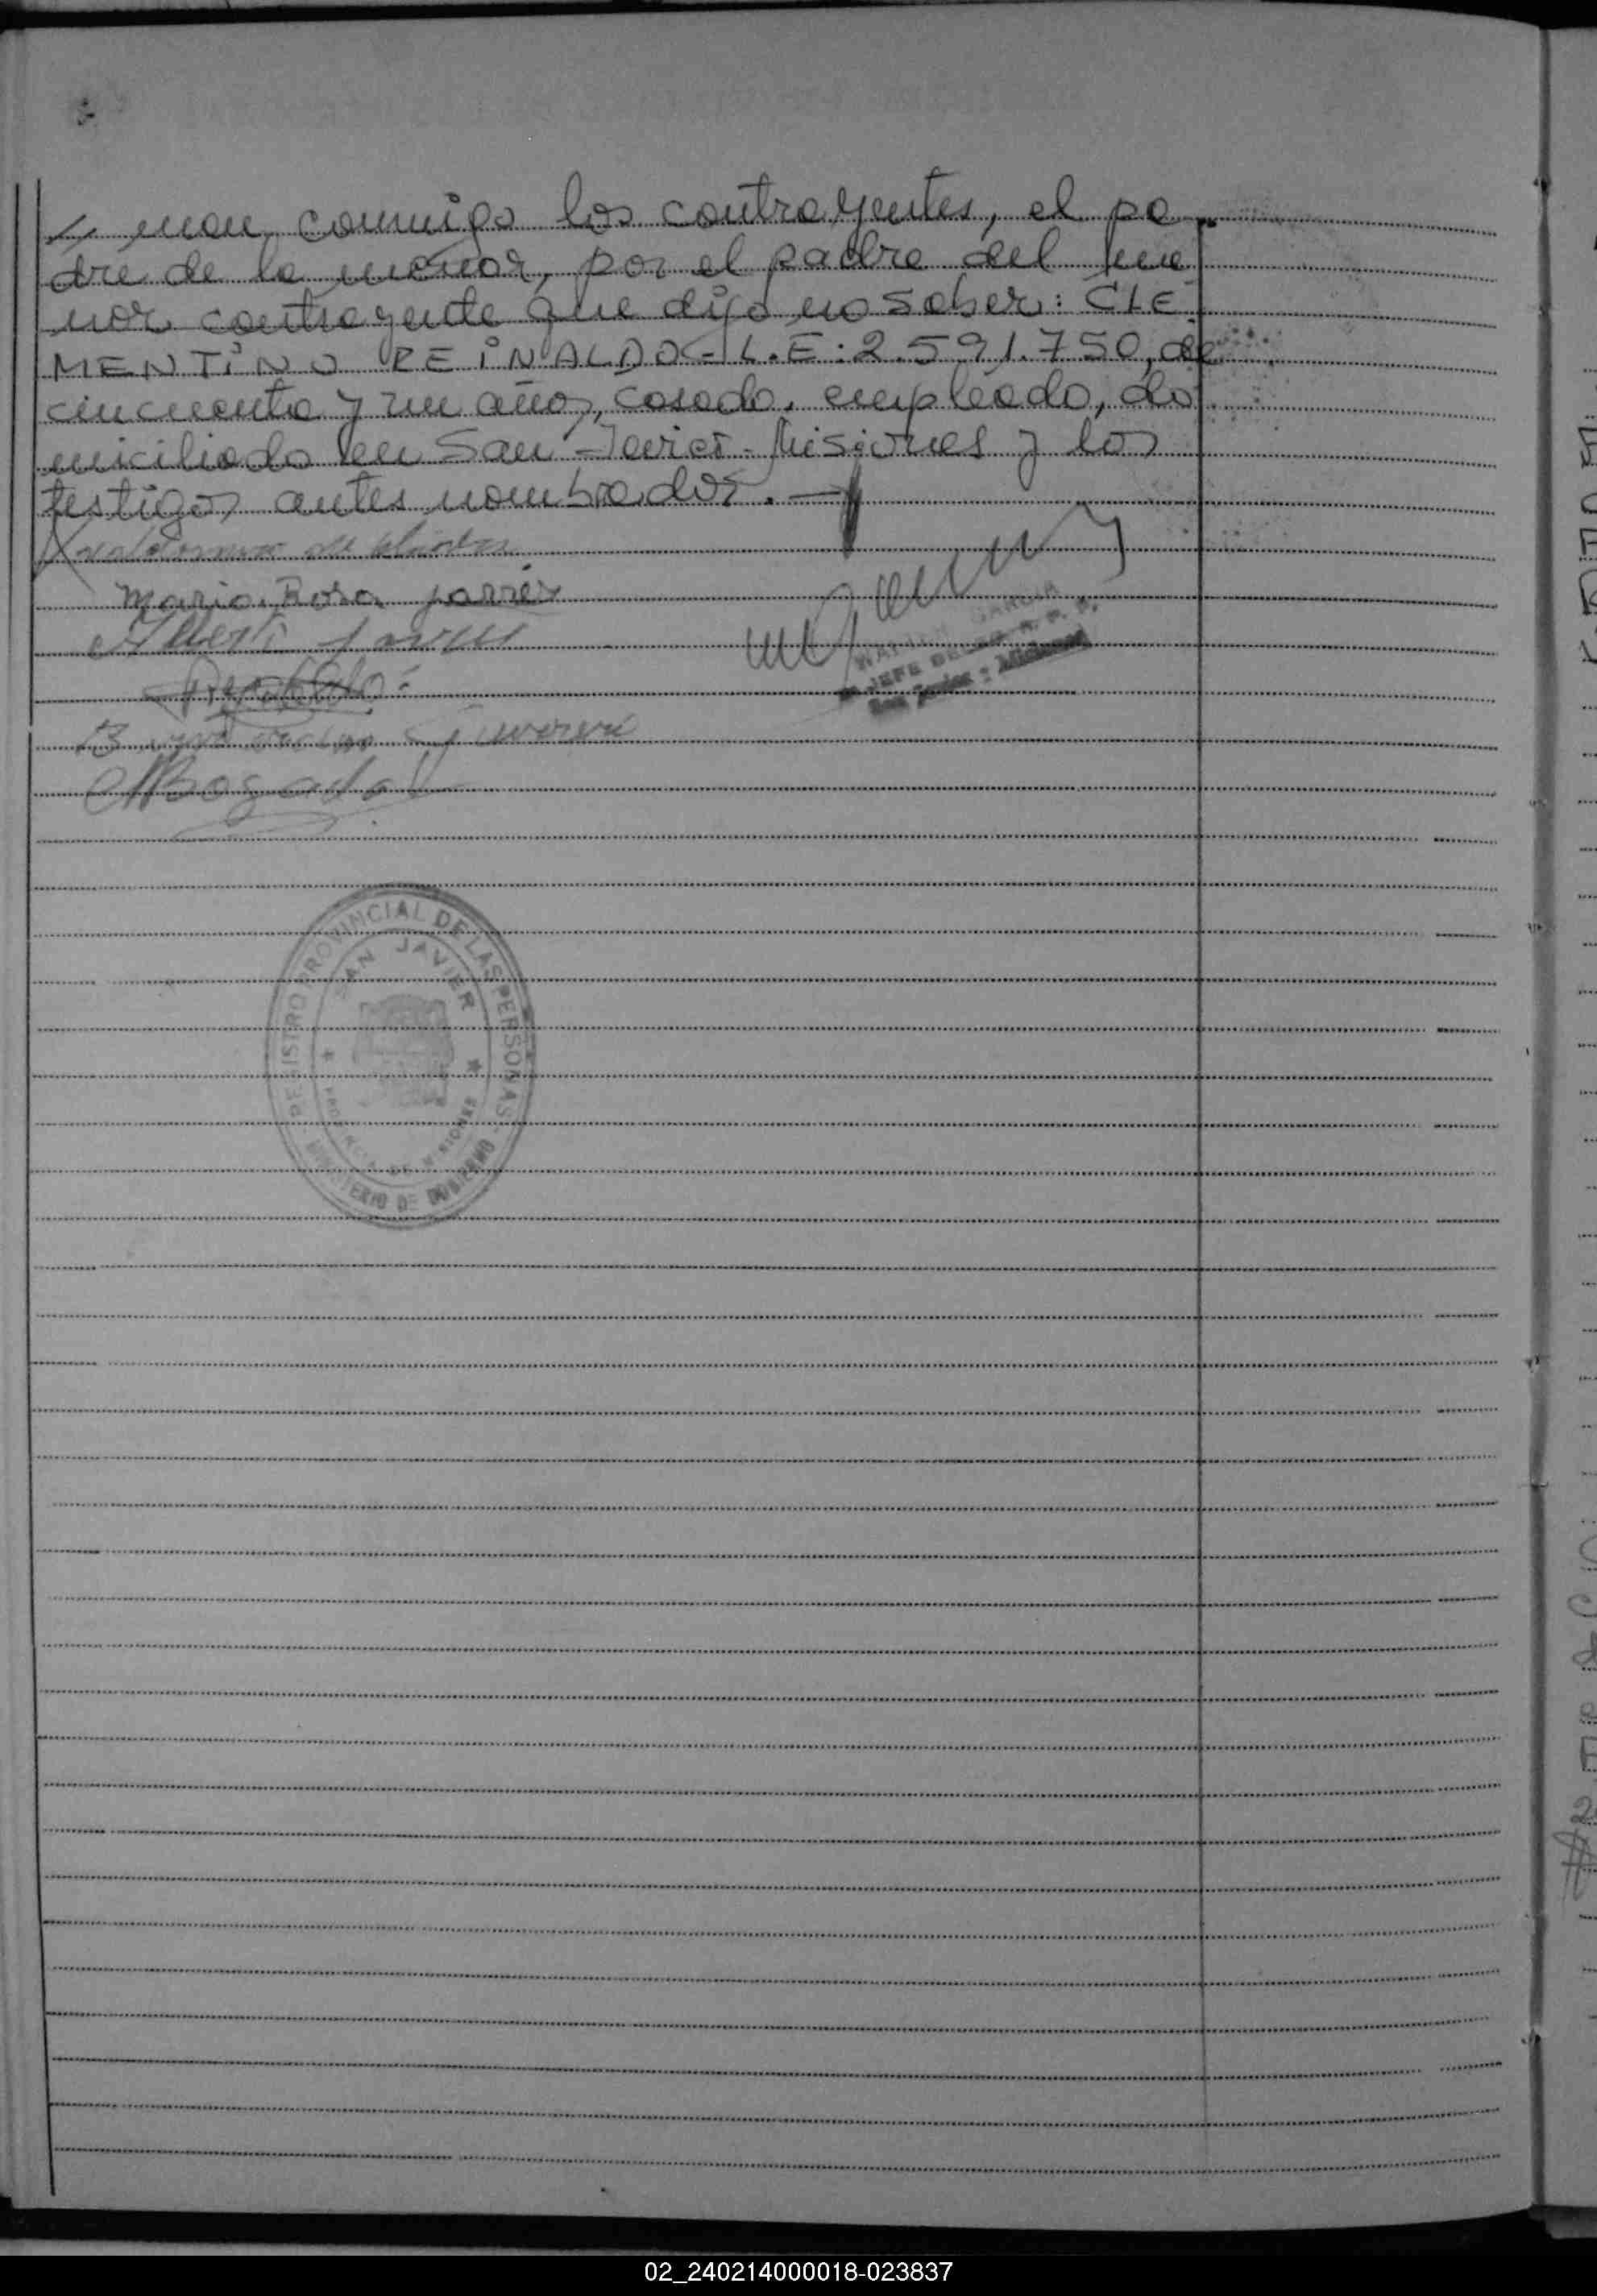 man conmigo los contrayentes, el pa
dre de la menor, por el padre del me
nor contrayente que dijo no saber: CLE
MENTINO REINALDO - L.E: 2.591.750, de
cincuenta y un años, casado, empleado, do
miciliado en San Javier - Misiones y los
testigos antes nombrados. —
Maria Rosa
GARCIA
JEFE
San Javier - Misiones
REGISTRO PROVINCIAL DE LAS PERSONAS -
SAN JAVIER
PROVINCIA DE MISIONES
MINISTERIO DE GOBIERNO
02_240214000018-023837